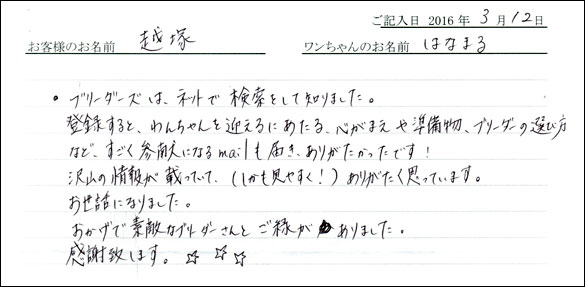 ご記入日 2016 年 3 月 12 日
お客様のお名前 越塚 ワンちゃんのお名前 はなまる
・ブリーダーズは、ネットで検索をして知りました。
登録すると、わんちゃんを迎えるにあたる、心がまえや準備物、ブリーダーの選び方
など、すごく参考になるmailも届き、ありがたかったです！
沢山の情報が載っていて、(しかも見やすく！)ありがたく思っています。
お世話になりました。
おかげで素敵なブリーダーさんとご縁がありました。
感謝致します。☆ ☆ ☆